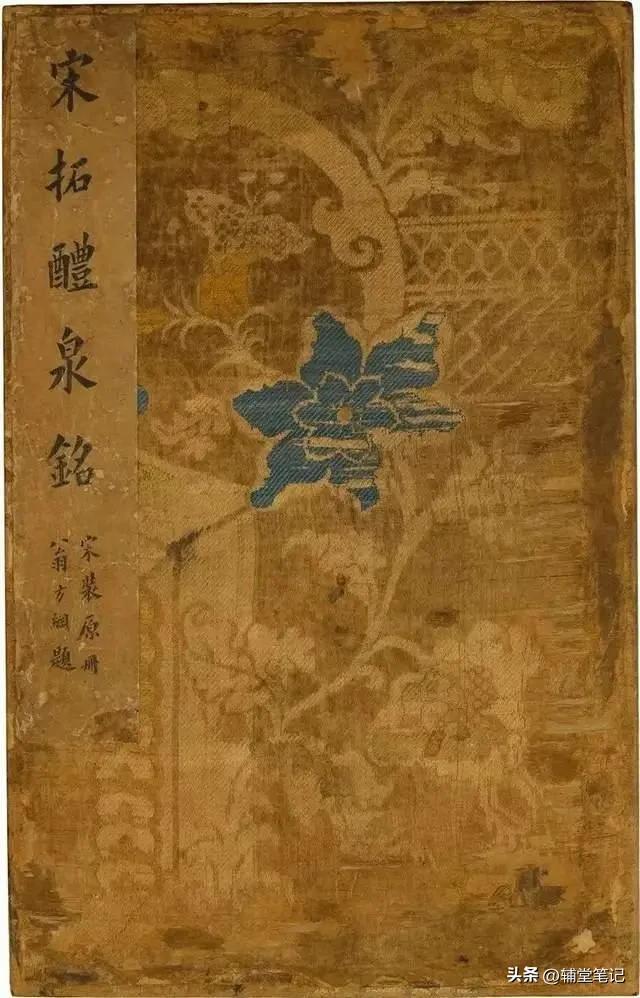 宋拓醴泉銘
宋裝原冊
翁方綱題
头条 @辅堂笔记